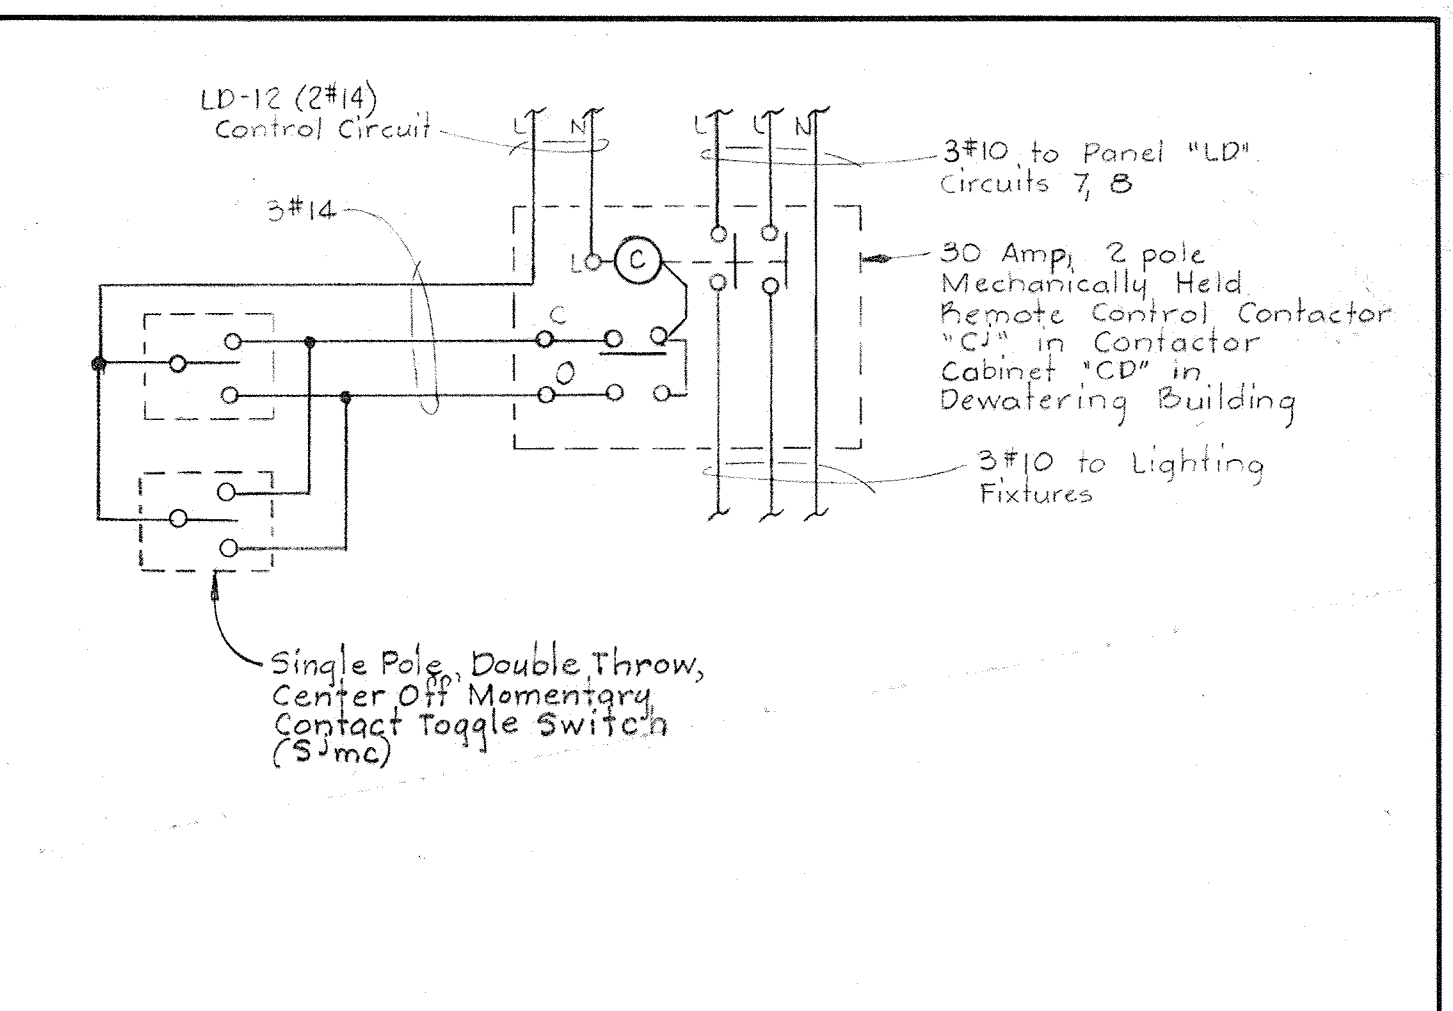 LD-12 (2#14)
Control Circuit
L N L L N
3#10 to Panel "LD"
Circuits 7, 8
3#14
30 Amp, 2 pole
Mechanically Held
Remote Control Contactor
"CJ" in Contactor
Cabinet "CD" in
Dewatering Building
L C
C
O
3#10 to Lighting
Fixtures
Single Pole, Double Throw,
Center Off Momentary
Contact Toggle Switch
(SJmc)